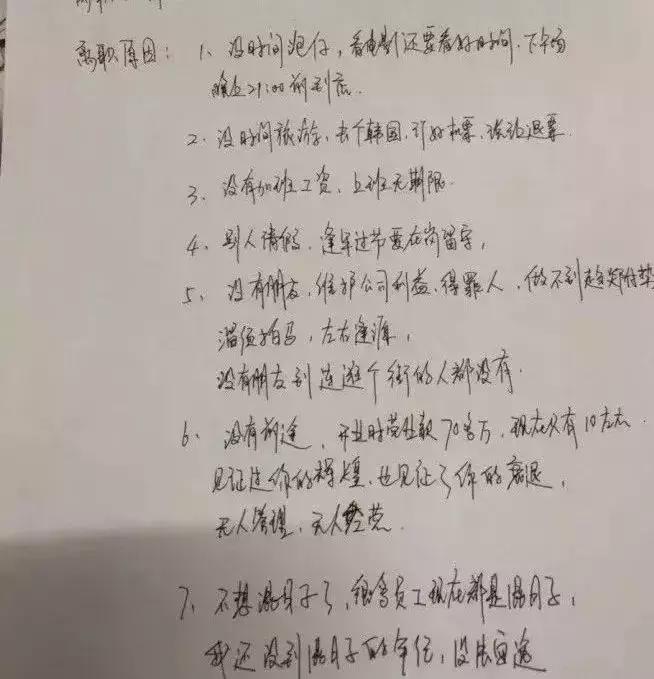 离职原因：1、没时间泡仔，看电影还要看好时间，下午场
难在21:00前到店.
2、没时间旅游，去个韩国，订好机票，被迫退票.
3、没有加班工资，上班无期限.
4、别人请假，逢年过节要在岗留守，
5、没有朋友，维护公司利益，得罪人，做不到趋炎附势
溜须拍马，左右逢源，
没有朋友到连逛个街的人都没有.
6、没有前途，开业时营业款70多万，现在只有10左右
见证过你的辉煌，也见证了你的衰退，
无人管理，无人经营.
7、不想混日子了，很多员工现在都是混日子，
我还没到混日子的年纪，没法